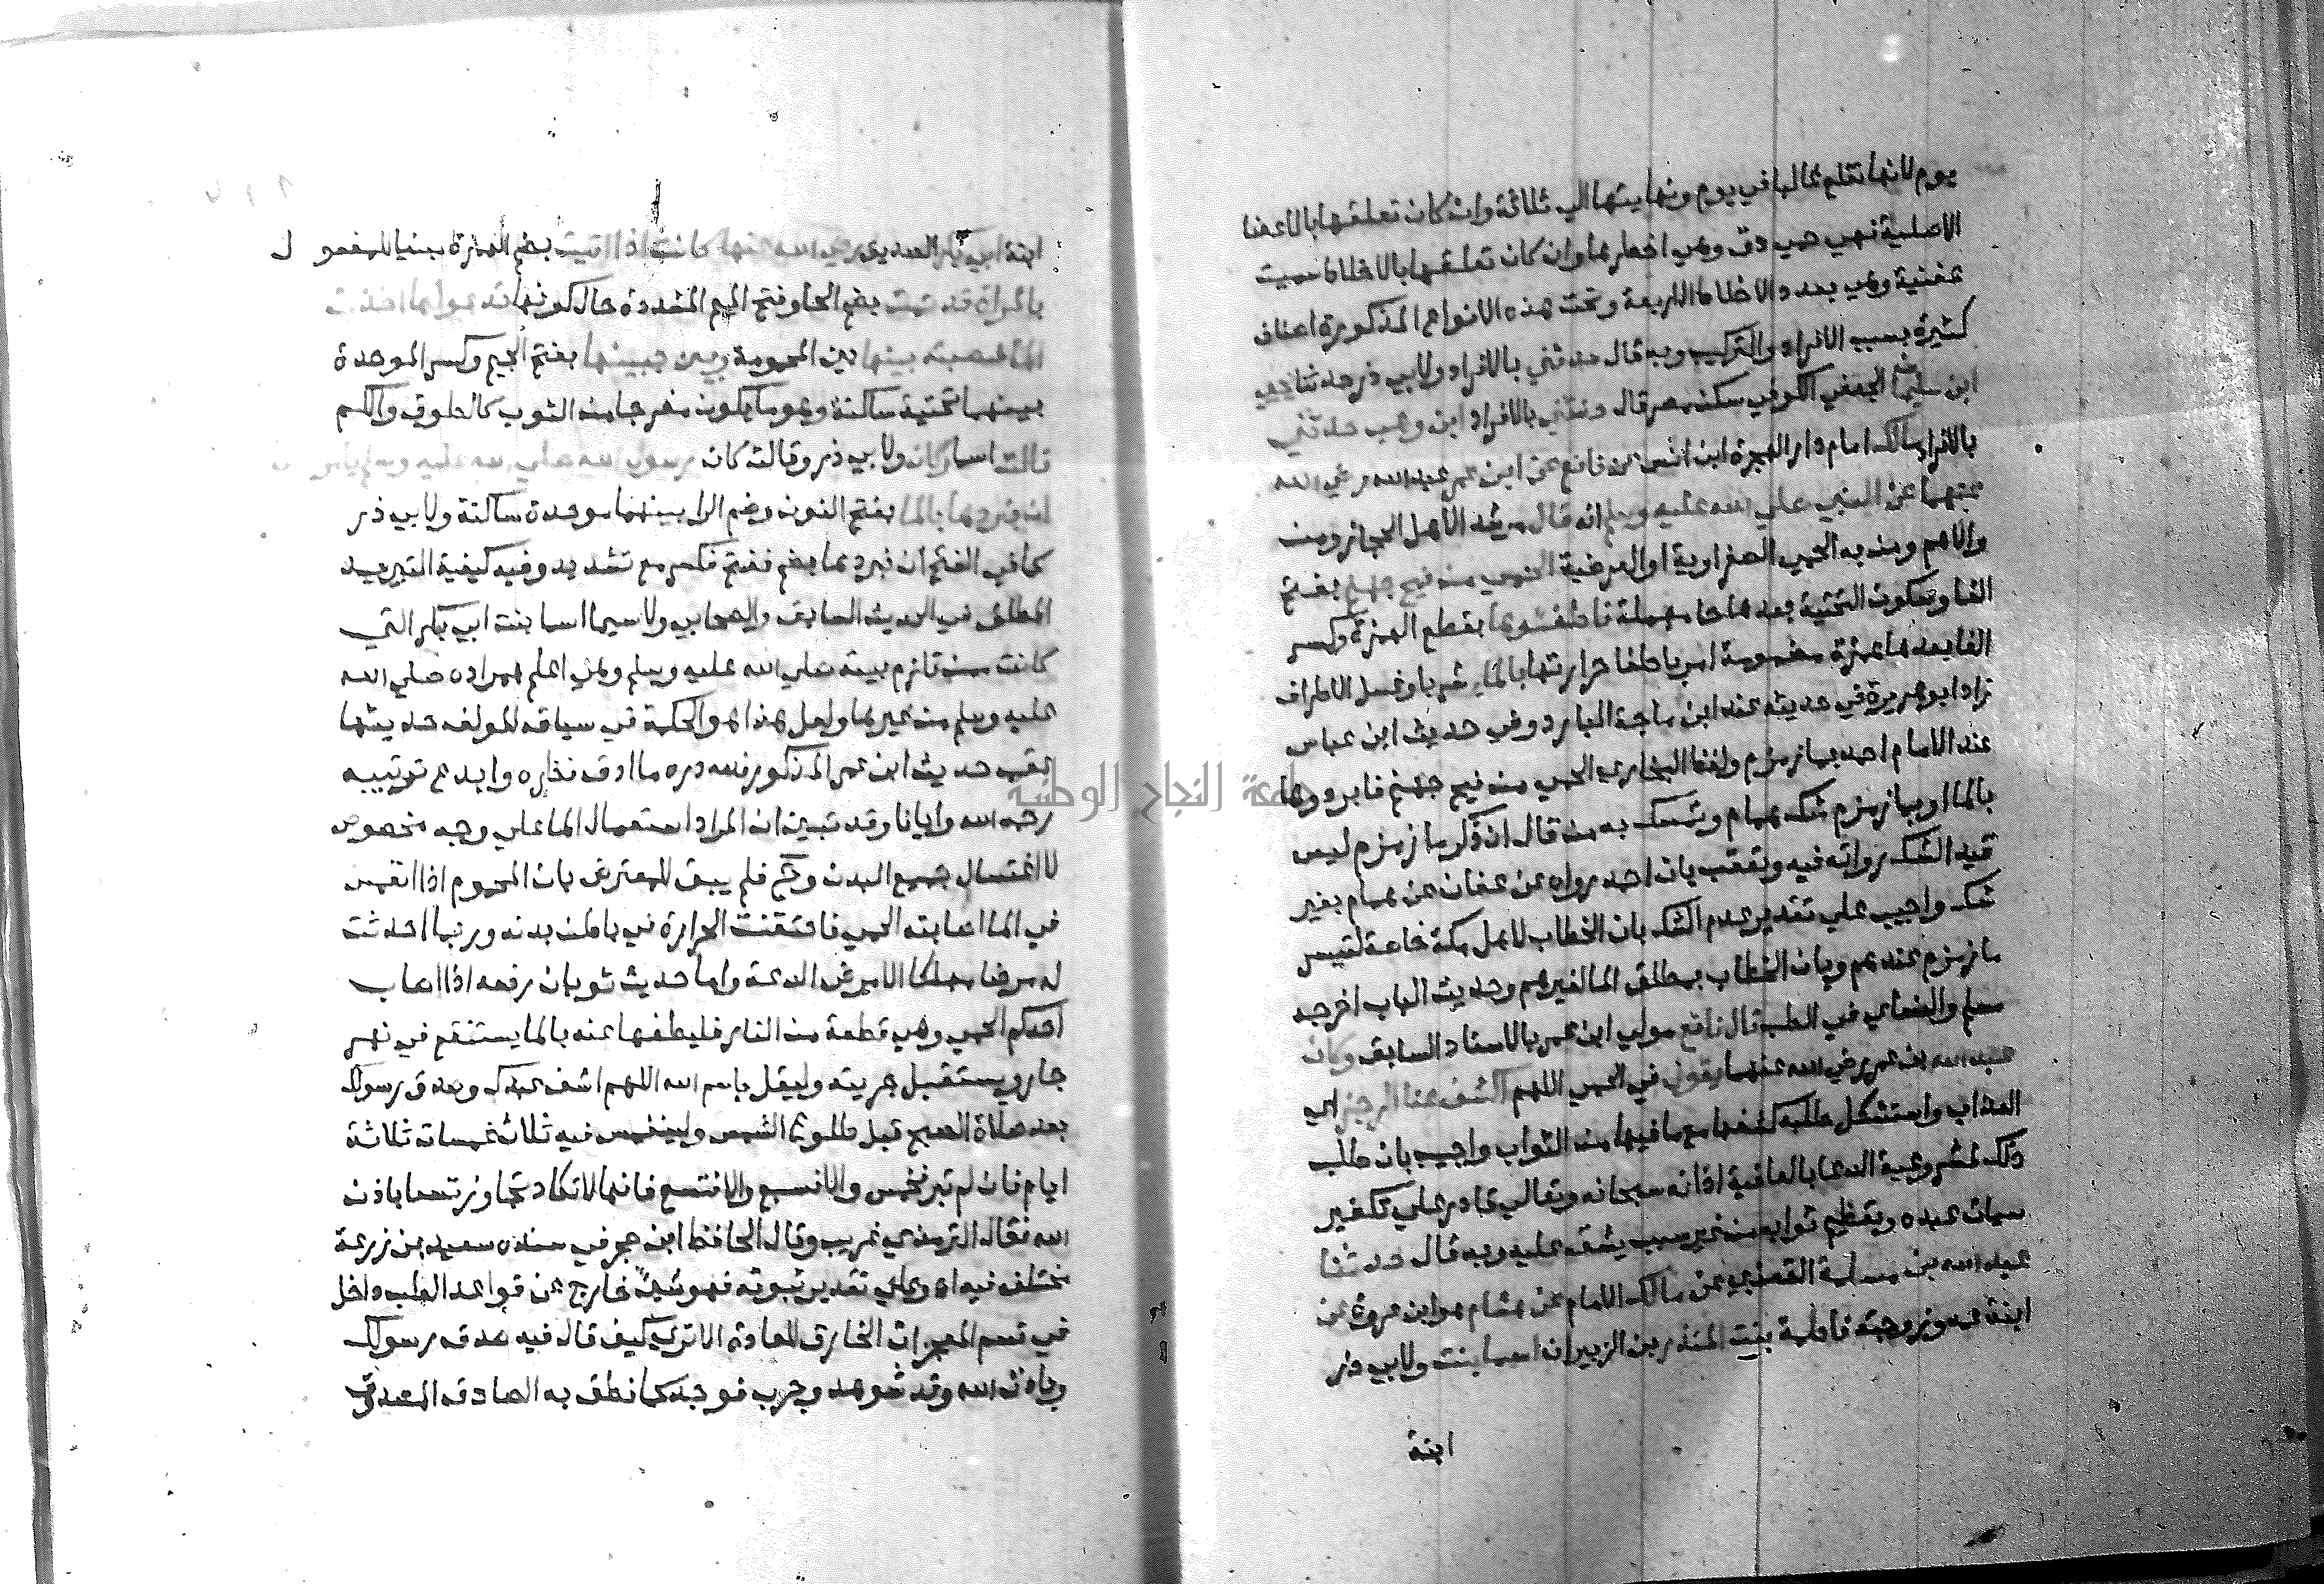 يوم لانها تقلع غالبا في يوم ونهايتها الي ثلاثة وان كان تعلقها بالاعضا
الاصلية فهي حمي دق وهي اخطرها وان كان تعلقها بالاخلاط سميت
عفنية وهي بعدد الاخلاط الاربعة وتحت هذه الانواع المذكورة اصناف
كثيرة بسبب الافراد والتركيب وبه قال حدثني بالافراد ولابي ذر حدثنا يحيي
ابن سليمان الجعفي الكوفي سكن مصر قال حدثني بالافراد ابن وهب حدثني
بالافراد مالك امام دار الهجرة ابن انس عن نافع عن ابن عمر عبد الله رضي الله
عنهما عن النبي صلي الله عليه وسلم انه قال مرشد الاهل الحجاز ومن
والاهم ومن به الحمي الصفراوية او العرضية الحمي من فيح جهنم بفتح
الفا وسكون التحتية بعدها حا مهملة فاطفئوها بقطع الهمزة وكسر
الفا بعدها همزة مضمومة امر باطفا حرارتها بالما شربا وغسل الاطراف
زاد ابو هريرة في حديثه عند ابن ماجة البارد وفي حديث ابن عباس
عند الامام احمد بماء زمزم ولفظ البخاري الحمي من فيح جهنم فابردوها
بالما او بما زمزم شك همام وتمسك به من قال ان ذكر ما زمزم ليس
قيد الشك رواته فيه وتعقب بان احمد رواه عن عفان عن همام بغير
شك واجيب علي تقدير عدم الشك بان الخطاب لاهل مكة خاصة لتيسر
ما زمزم عندهم وبان الخطاب بمطلق الما لغيرهم وحديث الباب اخرجه
مسلم والنسائي في الطب قال نافع مولي ابن عمر بالاسناد السابق وكان
عبد الله بن عمر رضي الله عنهما يقول في الحمي اللهم اكشف عنا الرجز اي
العذاب واستشكل طلبه كشفها مع ما فيها من الثواب واجيب بان طلب
ذلك لمشروعية الدعا بالعافية اذ انه سبحانه وتعالي قادر علي تكفير
سيئات عبده وتعظيم ثوابه من غير سبب يشق عليه وبه قال حدثنا
عبد الله بن مسلمة القعنبي عن مالك الامام عن هشام هو ابن عروة عن
ابنة عمه وزوجته فاطمة بنت المنذر بن الزبير ان اسما بنت ولابي ذر
ابنة
ابنة ابي بكر الصديق رضي الله عنها كانت اذا اتيت بضم الهمزة مبنيا للمفعول
بالمراة قد حمت بضم الحا وفتح الميم المشددة حال كونها تدعو لها اخذت
الما فصبته بينها بين المحمومة وبين جيبها بفتح الجيم وكسر الموحدة
بينهما تحتية ساكنة وهو ما يكون مفرجا من الثوب كالطوق والكم
قالت اسما وكان ولابي ذر وقالت كان رسول الله صلي الله عليه وسلم يامرنا
ان نبردها بالما بفتح النون وضم الرا بينهما موحدة ساكنة ولابي ذر
كما في الفتح ان نبردها بضم ففتح فكسر مع تشديد وفيه كيفية التبريد
المطلق في الحديث السابق والصحابي ولا سيما اسما بنت ابي بكر التي
كانت ممن تلزم بيته صلي الله عليه وسلم وهي اعلم بمراده صلي الله
عليه وسلم من غيرها ولعل هذا هو الحكمة في سياقه المولف حديثها
عقب حديث ابن عمر المذكور فلله دره ما ادق نظره وابدع ترتيبه
رحمه الله وايانا وقد تبين ان المراد استعمال الما علي وجه مخصوص
لا اغتسال جميع البدن وح فلم يبق للمعترض بان المحموم اذا انغمس
في الما اصابته الحمي فاحتقنت الحرارة في باطن بدنه وربما احدثت
له مرضا مهلكا الا مرض الدعة واما حديث ثوبان رفعه اذا اصاب
احدكم الحمي وهي قطعة من النار فليطفها عنه بالما يستنقع في نهر
جار ويستقبل جريته وليقل باسم الله اللهم اشف عبدك وصدق رسولك
بعد صلاة الصبح قبل طلوع الشمس ولينغمس فيه ثلاث غمسات ثلاثة
ايام فان لم تبر فخمس والا فسبع والا فتسع فانها لا تكاد تجاوز تسعا باذن
الله فقال الترمذي غريب وقال الحافظ ابن حجر في سنده سعيد بن زرعة
مختلف فيه اه وعلي تقدير ثبوته فهو شيء خارج عن قواعد الطب داخل
في قسم المعجزات الخارق للعادة الا تري كيف قال فيه صدق رسولك
وباذن الله وقد شوهد وجرب فوجد كما نطق به الصادق المصدق
جامعة النجاح الوطنية